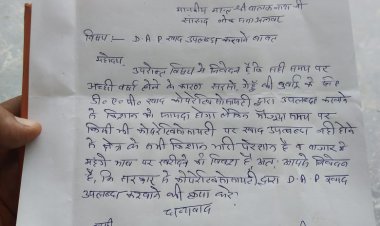 माननीय
सांसद लोक सभा अलवर
विषय :— D A P खाद उपलब्ध करवाने बाबत
महोदय
उपरोक्त विषय में निवेदन है कि सही समय पर
अच्छी वर्षा होने के कारण सरसों, गेहूँ की बुवाई के लिए
डी० ए० पी० खाद कोपरेटिव सोसायटी द्वारा उपलब्ध करवाने
से किसान को फायदा होगा लेकिन मौजूदा समय पर
किसी भी कोपरेटिव सोसायटी पर खाद उपलब्ध नहीं होने
से क्षेत्र के सभी किसान भारी परेशान है व बाजार से
महंगे भाव पर खरीदने को विवश है अतः आपसे निवेदन
है, कि सरकार से कोपरेटिव सोसायटी द्वारा D.A.P खाद
उपलब्ध करवाने की कृपा करे।
धन्यवाद